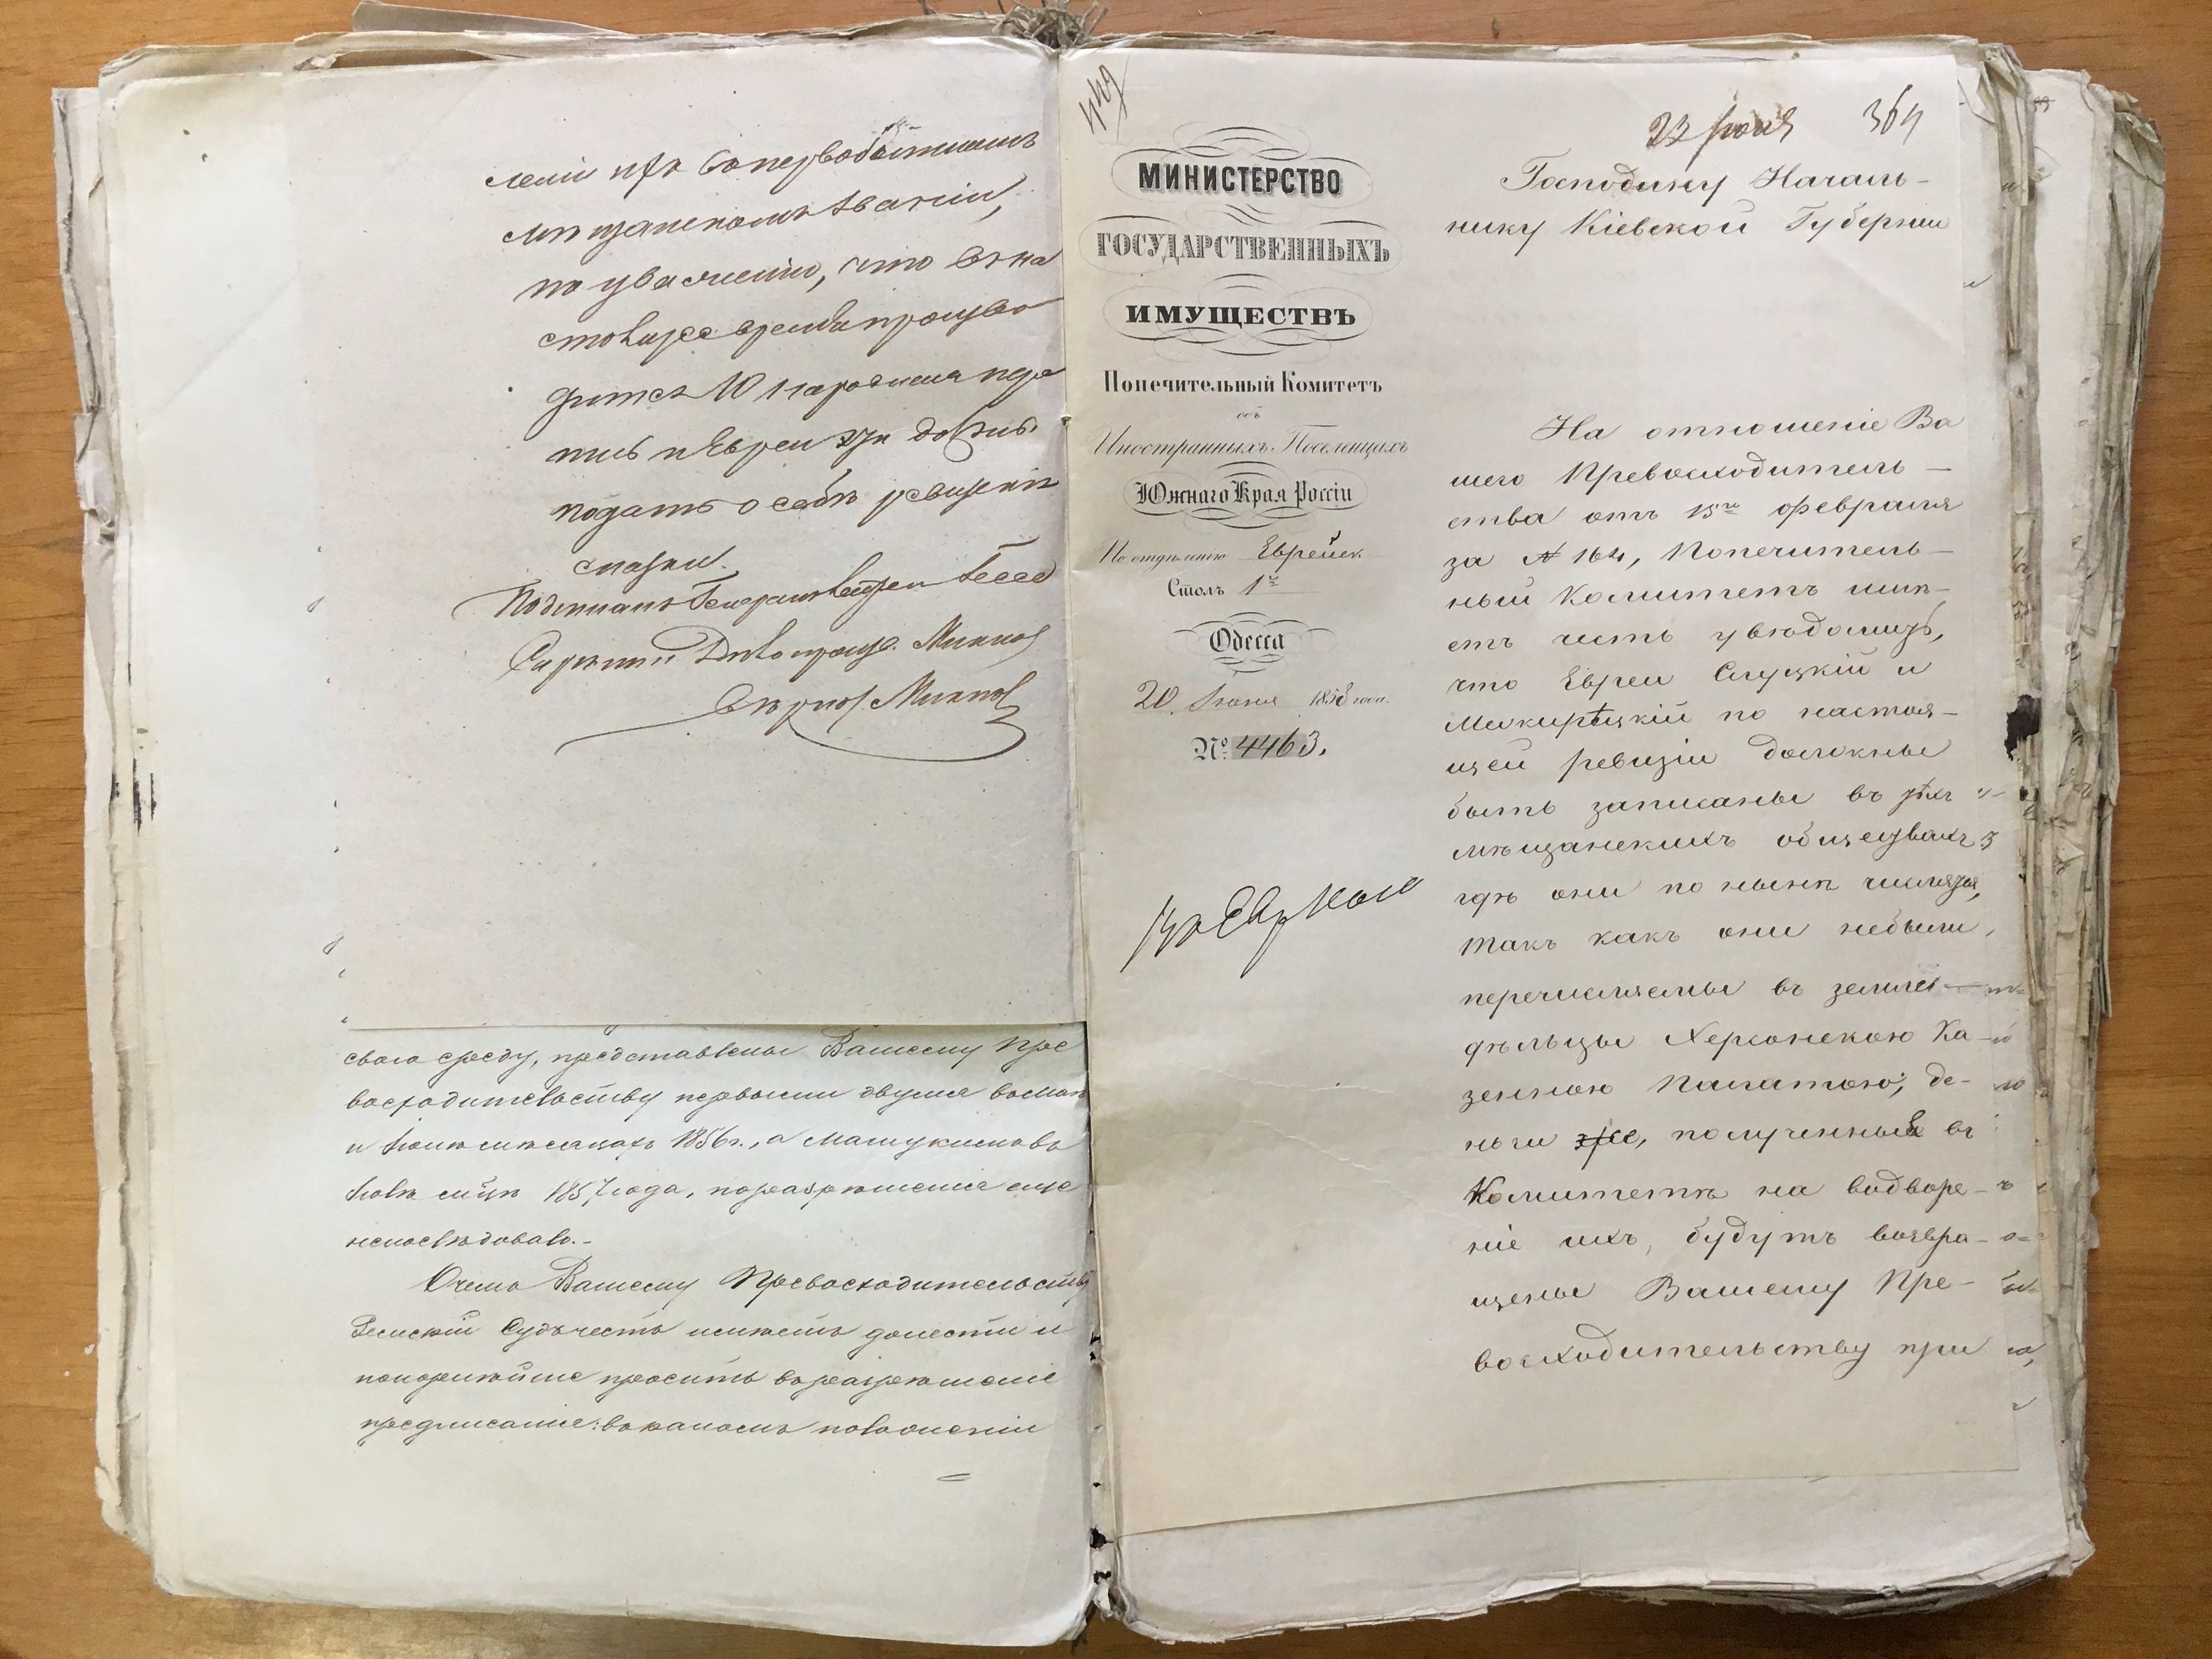 леніи ихъ въ первобытномъ
мѣщанскомъ званіи,
по уваженію, что въ на
стоящее время произво
дится 10 народная пере
пись и Евреи эти должны
подать о себѣ ревизскія
сказки.
Подписалъ Генералъ
Скрѣпилъ Дѣлопроизв.
Вѣрно:
свою среду, представлены Вашему Пре
восходительству первыми двумя въ Маѣ
и Іюнѣ мѣсяцахъ 1856 г., а
Іюлѣ м-цѣ 1857 года, но разрѣшенія еще
непослѣдовало.-
О чемъ Вашему Превосходительству
Земскій Судъ честь имѣетъ донести и
покорнѣйше просить въ разрѣшеніе
предписанія: въ какомъ положеніи
449
МИНИСТЕРСТВО
ГОСУДАРСТВЕННЫХЪ
ИМУЩЕСТВЪ
Попечительный Комитетъ
объ
Иностранныхъ Поселенцахъ
Южнаго Края Россіи
По отдѣленію Еврейск.
Столъ 1й
Одесса
20 Іюня 1858 года.
№ 4463.
23 Іюня 364
Господину Началь-
нику Кіевской Губерніи
На отношеніе Ва
шего Превосходитель-
ства отъ 15го Февраля
за № 164, Попечитель-
ный Комитетъ имѣ-
етъ честь увѣдомить,
что Евреи Слуцкій и
по настоя-
щей ревизіи должны
быть записаны въ тѣхъ
мѣщанскихъ обществахъ,
гдѣ они по нынѣ числятся,
такъ какъ они небыли
перечисляемы въ земле-
дѣльцы Херсонскою Ка-
зенною Палатою; де-
ньги же, полученныя въ
Комитетѣ на водворе-
ніе ихъ, будутъ возвра-
щены Вашему Пре-
восходительству при